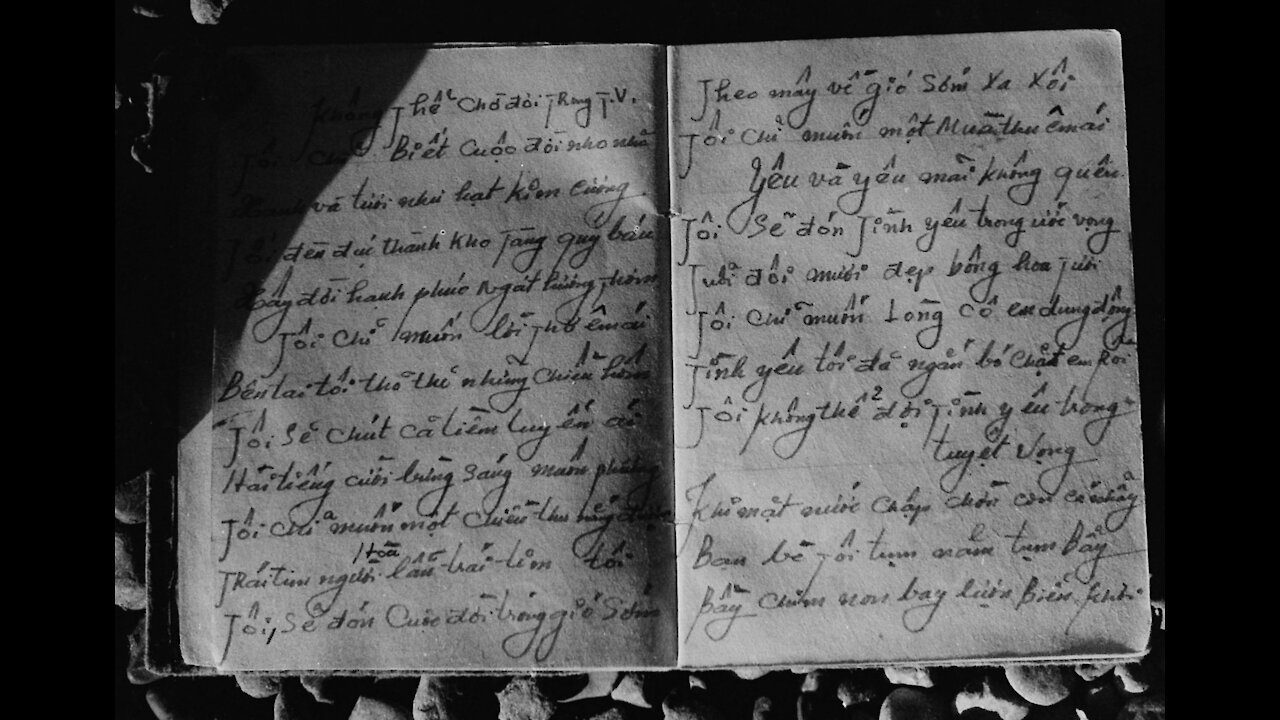 Không Thể Chờ đời Trong T.V.
Tôi Chỉ Biết Cuộc đời nho nhỏ
và tươi như hạt kim cương
Tôi đến đục thành kho Tàng quý báu
Xây đời hạnh phúc Ngát hương thơm
Tôi Chỉ muốn lời thơ êm ái
Bên tai tôi thỏ thẻ những Chiều hôm
Tôi Sẽ Chút cả tiềm luyến ái
Hái tiếng cười bừng Sáng muôn phương
Tôi Chỉ muốn một Chiều thu nắng
Hoà
Trái tim người lẫn trái tim tôi
Tôi, Sẽ đón Cuộc đời trong gió Sớm
Theo mây về gió Sớm Xa Xôi
Tôi Chỉ muốn một Mùa thu êm ái
Yêu và yêu mãi không quên
Tôi Sẽ đón Tình yêu trong ước vọng
Tuổi đôi mươi đẹp bông hoa Tươi
Tôi Chỉ muốn Lòng Cô em dung động
Tình yêu tôi đã ngắn bó Chặt em Rồi
Tôi không thể đợi Tình yêu trong
tuyệt vọng
Khi mặt nước Chập chờn con cá nhẩy
Bạn bè Tôi tụm năm tụm Bẩy
Bầy Chim non bay lượn Biển khơi